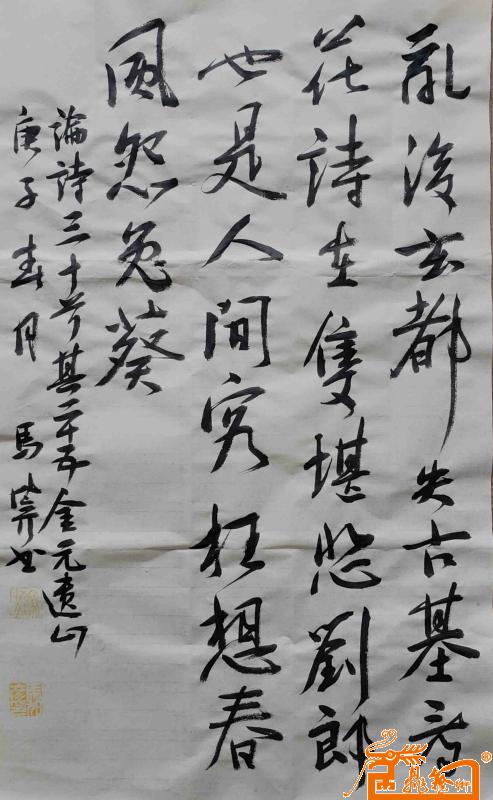 亂後玄都失古基看
花詩在隻堪悲劉郎
也是人間客枉想春
風怨兔葵
論詩三十首其二十五金元遺山
庚子春月馬书